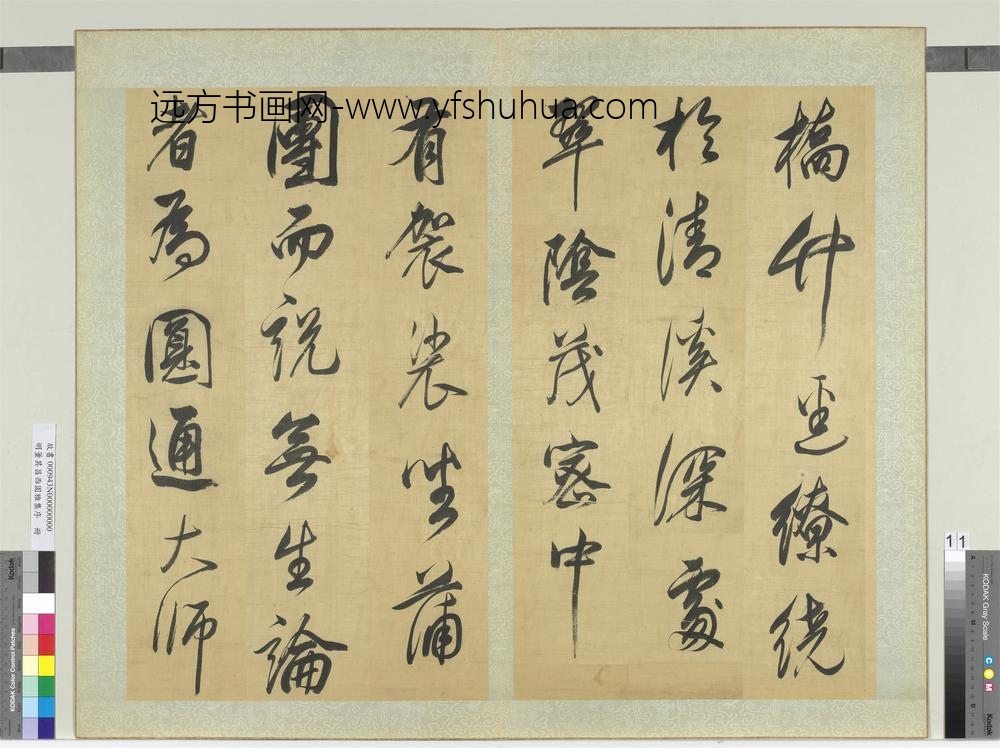 远方书画网-www.yfshuhua.com
橋竹逕繚繞
於清溪深處
翠陰茂密中
有袈裟坐蒲
團而說無生論
者為圓通大師
故書 000943N000000000
明董其昌西園雅集序 冊
11
Kodak
KODAK Color Control Patches
KODAK Gray Scale
C
Y
M
Kodak
A
M
B